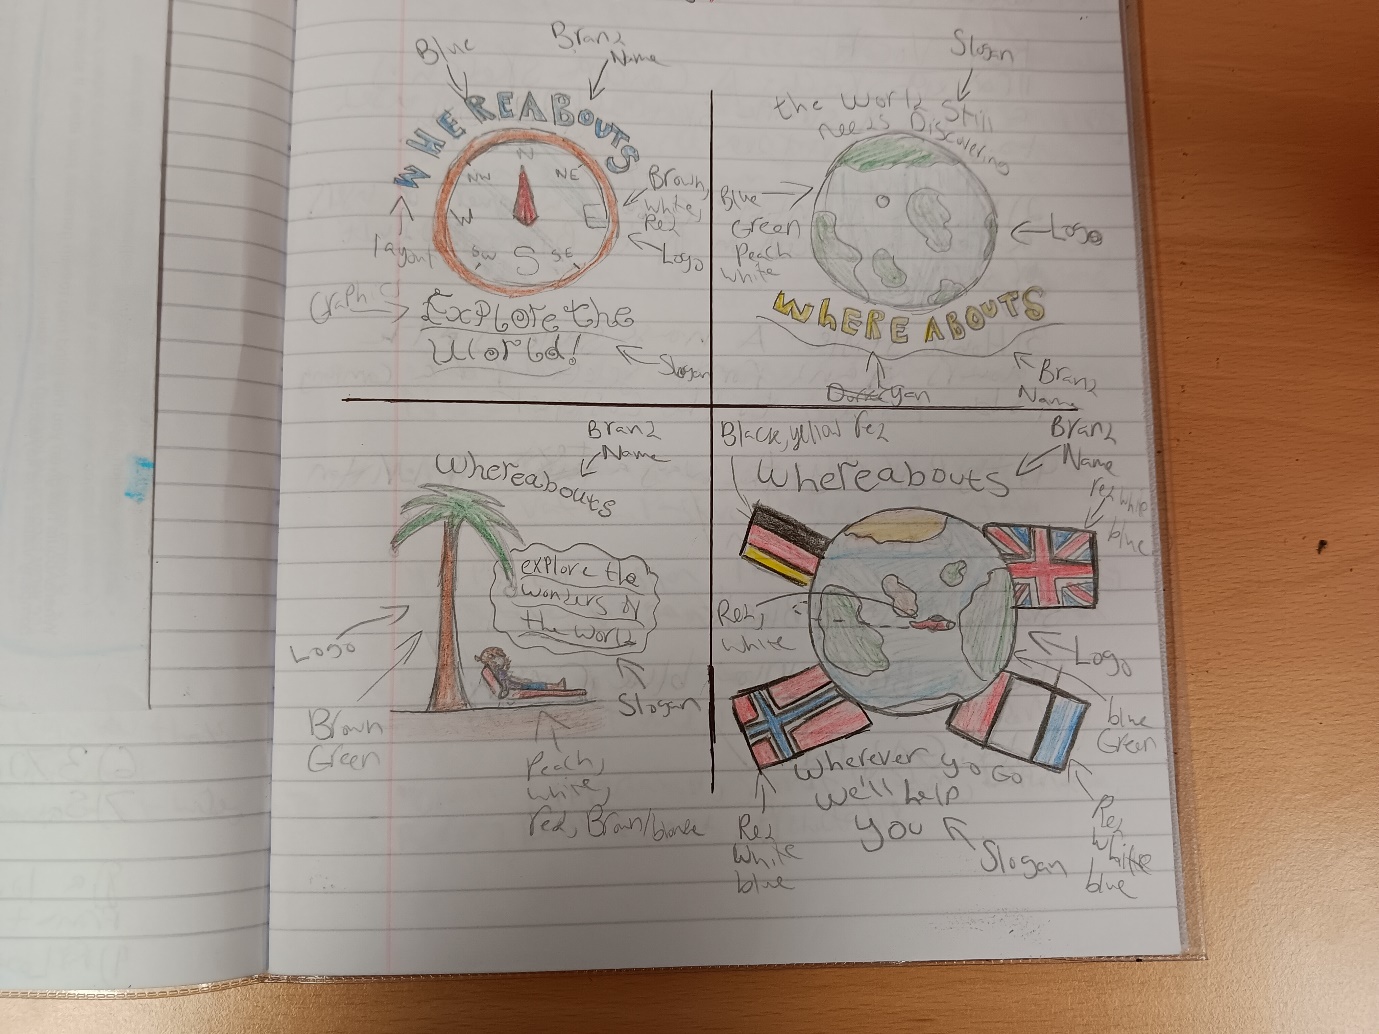 Blue
Brand
Name
WHEREABOUTS
N
NW
NE
W
E
SW
S
SE
Brown,
white,
Red
Logo
layout
Graphic
Explore the
World!
Slogan
Slogan
the World Still
needs Discovering
Blue
Green
Peach
white
Logo
WHERE ABOUTS
Brand
Name
Brand
Name
Whereabouts
explore the
wonders of
the world
Logo
Brown
Green
Slogan
Peach,
white,
red, Brown/blonde
Black, yellow red
Brand
Name
Whereabouts
red, white
blue
Red,
white
Logo
blue
Green
Wherever yo Go
we'll help
you
Slogan
Red
White
blue
Red
white
blue